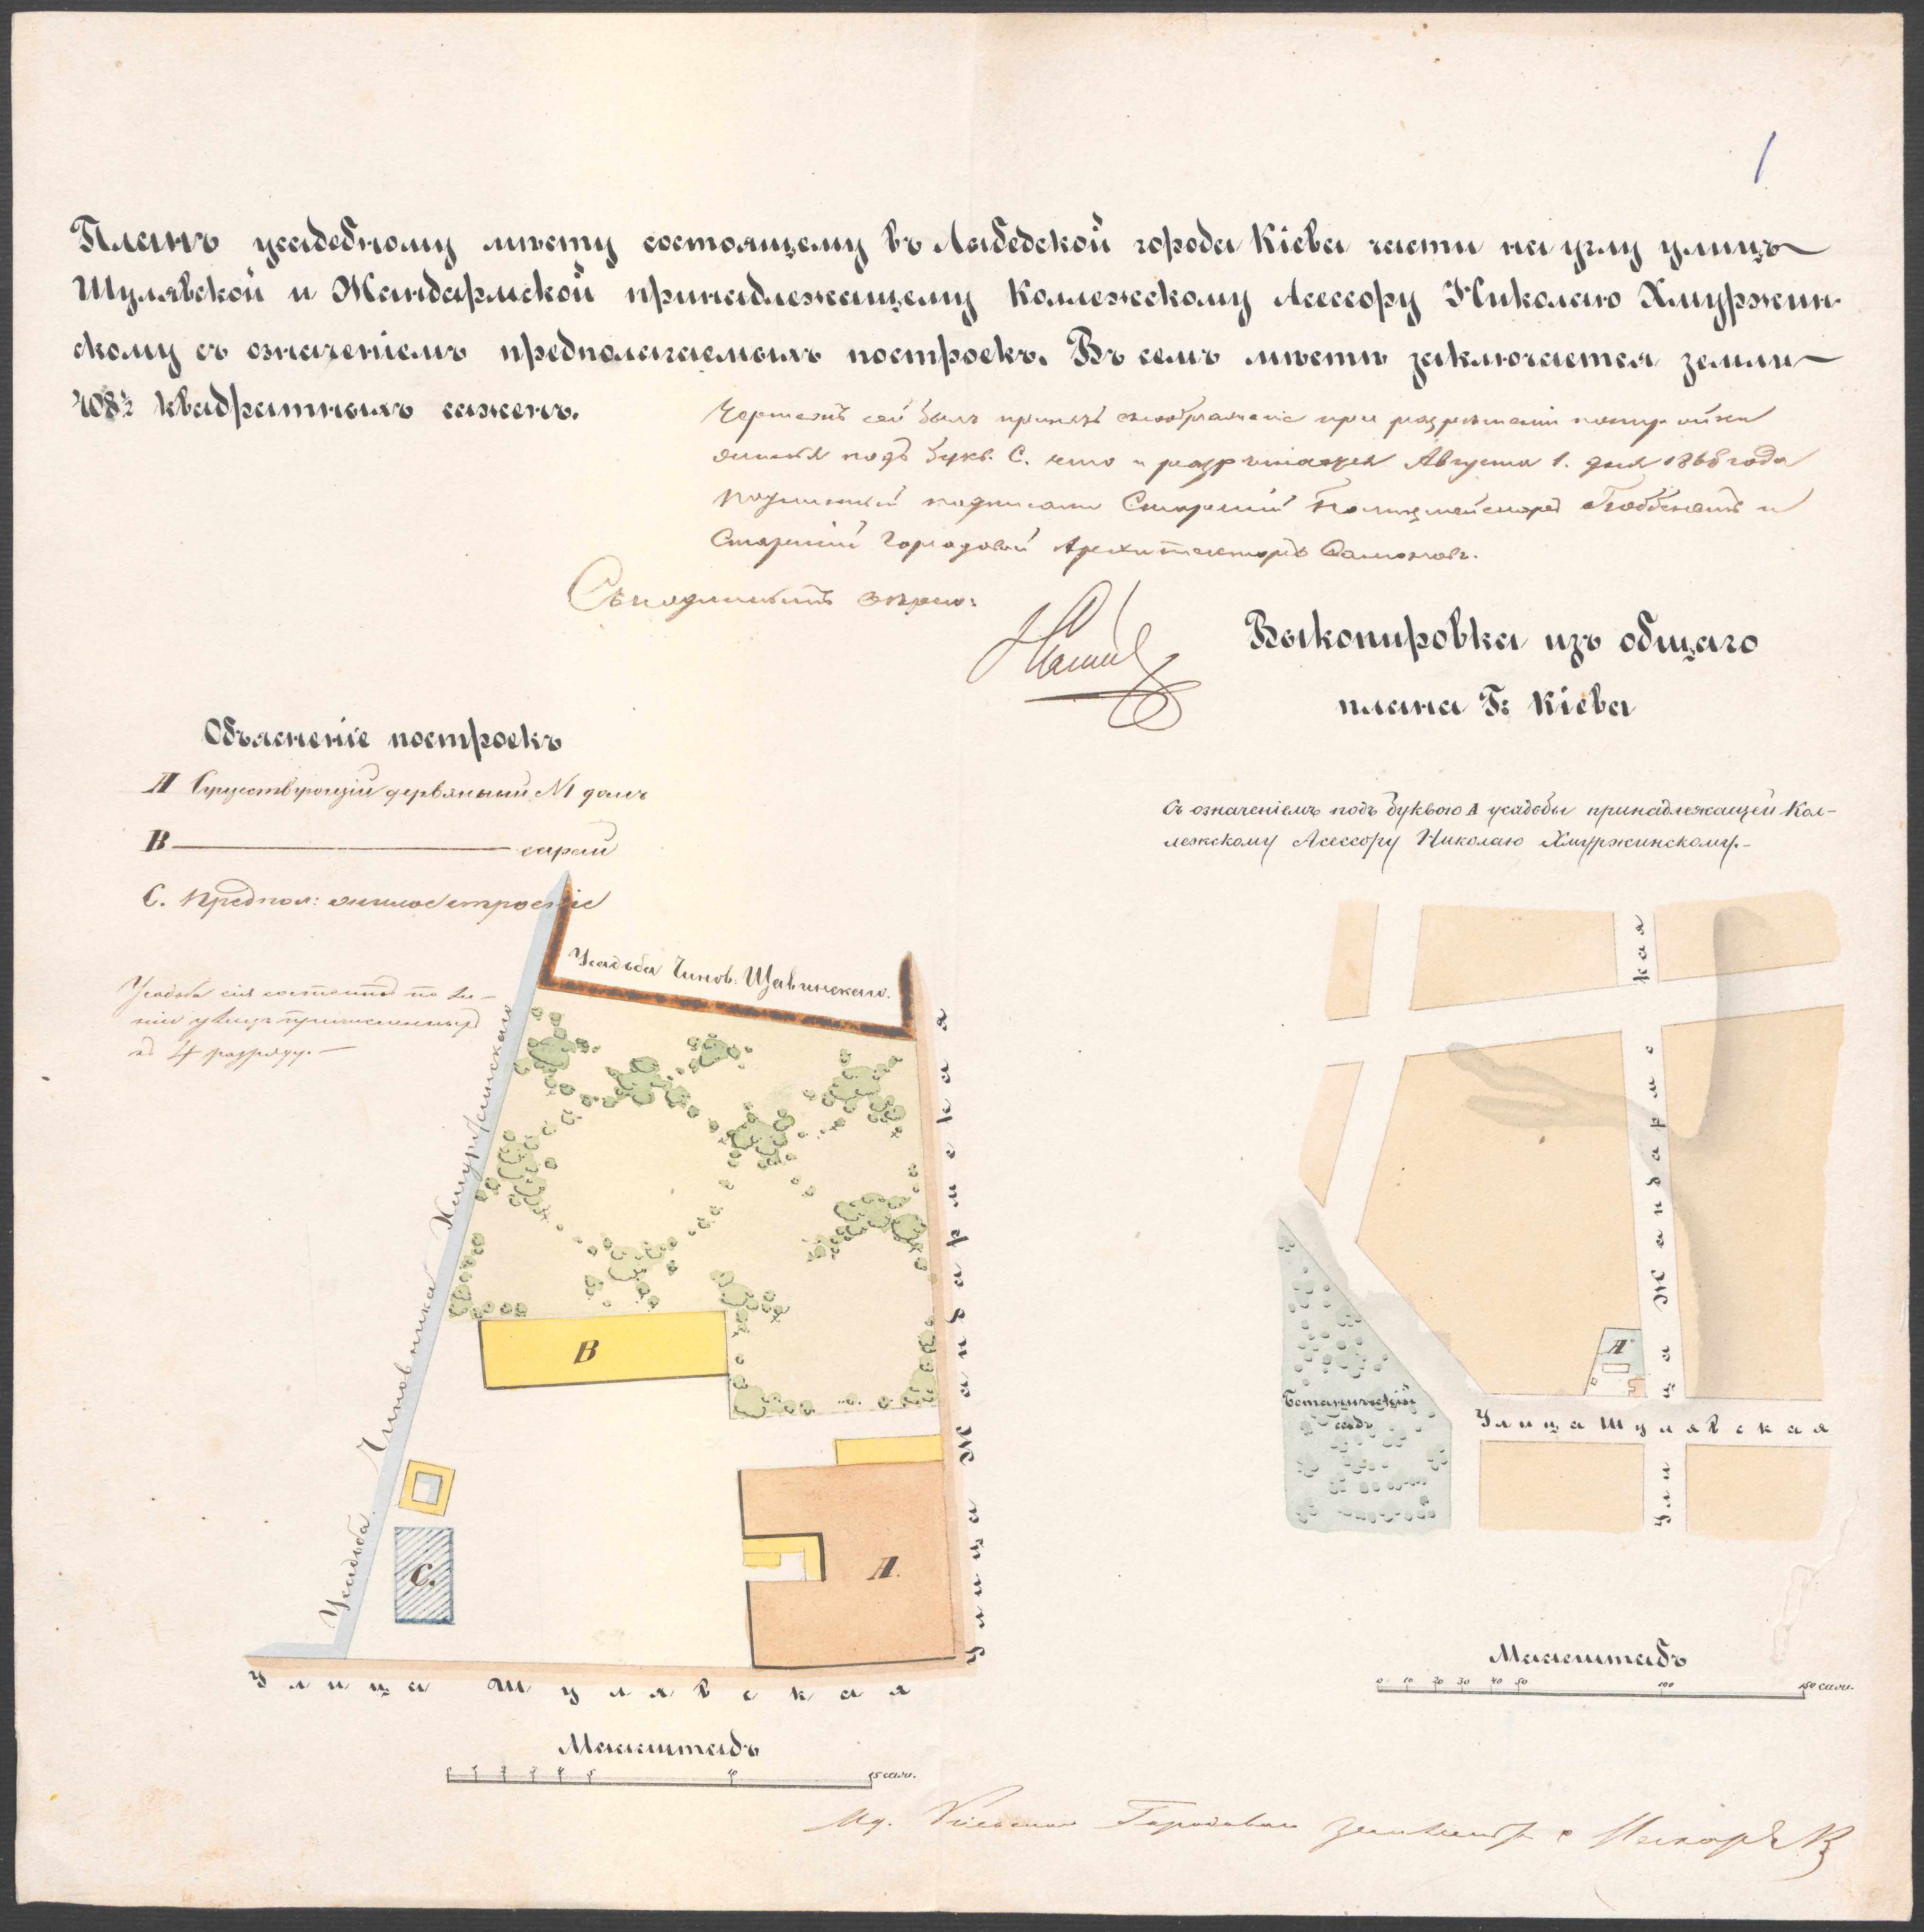 1
Планъ усадебному мѣсту состоящему въ Лыбедской города Кіева части на углу улицъ
Шулявской и Жандармской принадлежащему Коллежскому Асессору Николаю Хмуржин-
скому съ означеніемъ предполагаемыхъ построекъ. Въ семъ мѣстѣ заключается земли
408½ квадратныхъ сажень.
Чертежъ сей былъ принятъ при разрѣшеніи постройки
жилья подъ букв. С. что и разрѣшается Августа 1. дня 1868 года
Подлинный подписали Старшій Полицмейстеръ и
Старшій Городовой Архитекторъ
Съ подлиннымъ вѣрно:
Выкопировка изъ общаго
плана Г: Кіева
Объясненіе построекъ
А Существующій деревяный №1 домъ
В сарай
С. Предпол: жилое строеніе
Съ означеніемъ подъ буквою А усадьбы принадлежащей Кол-
лежскому Асессору Николаю Хмуржинскому.
Усадьба сія состоитъ по ли-
ніи улицъ причисленныхъ
къ 4 разряду.
Усадьба Чинов: Щавинскаго.
Усадьба Чиновника Хмуржинскаго
Улица Жандармская
В
С.
А.
Улица Шулявская
Масштабъ
0 1 2 3 4 5 10 15 саж.
Улица Жандармская
А
Ботаническій
садъ
Улица Шулявская
Масштабъ
0 10 20 30 40 50 100 150 саж.
Мл. Кіевскій Городовой Землемѣръ